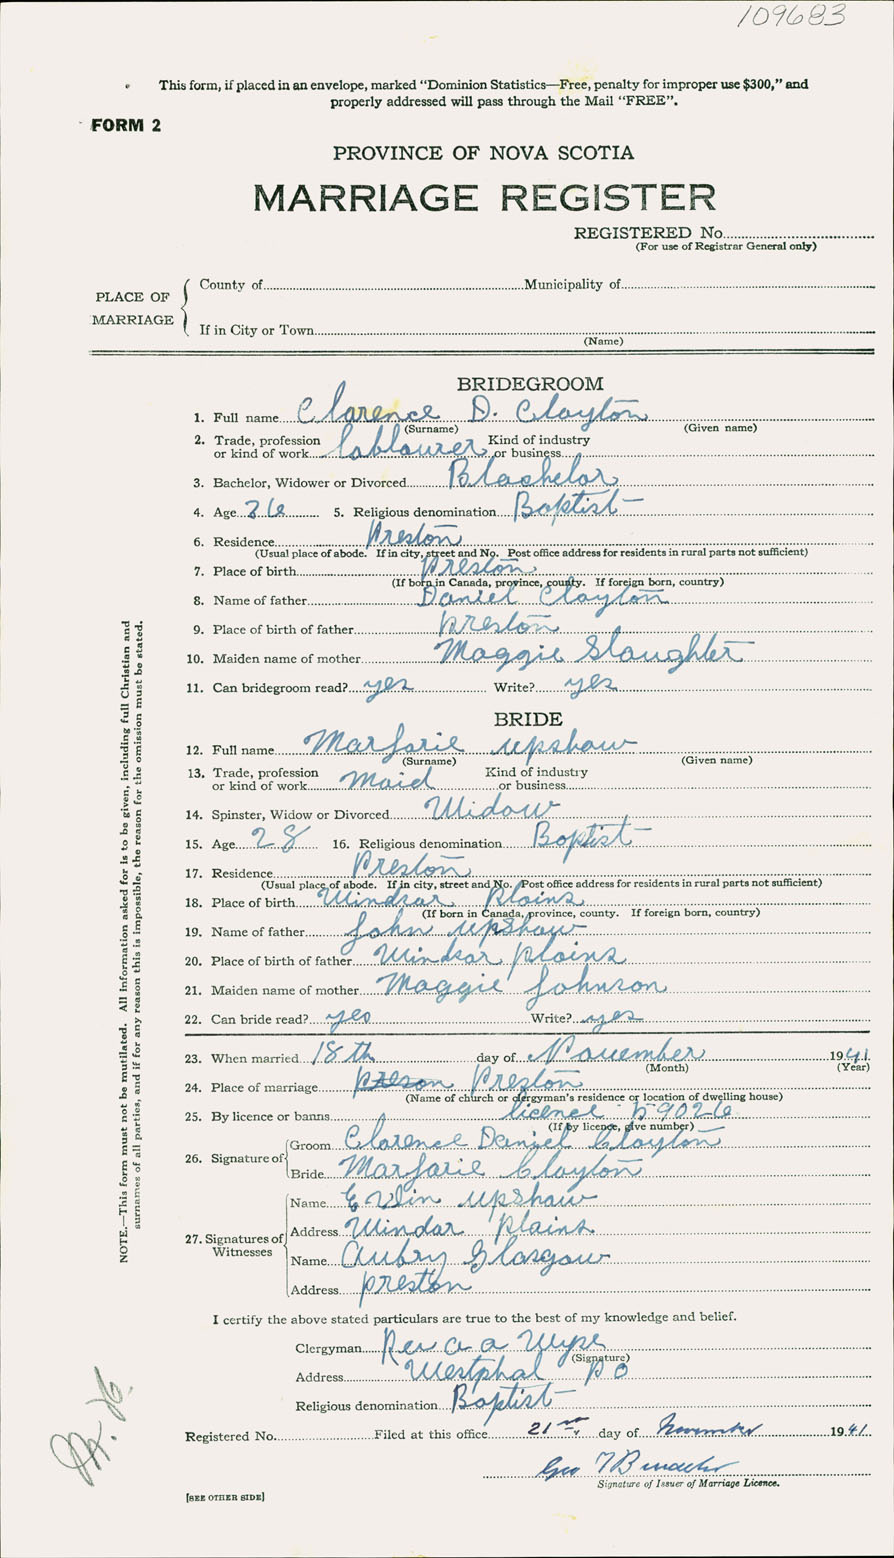 109683
This form, if placed in an envelope, marked “Dominion Statistics—Free, penalty for improper use $300,” and
properly addressed will pass through the Mail “FREE”.
FORM 2
PROVINCE OF NOVA SCOTIA
MARRIAGE REGISTER
REGISTERED No.
(For use of Registrar General only)
PLACE OF MARRIAGE
County of Municipality of
If in City or Town
(Name)
BRIDEGROOM
1. Full name Clarence D. Clayton
(Surname) (Given name)
2. Trade, profession or kind of work Lablourer Kind of industry or business
3. Bachelor, Widower or Divorced Blachelor
4. Age 26 5. Religious denomination Baptist
6. Residence Preston
(Usual place of abode. If in city, street and No. Post office address for residents in rural parts not sufficient)
7. Place of birth Preston
(If born in Canada, province, county. If foreign born, country)
8. Name of father Daniel Clayton
9. Place of birth of father Preston
10. Maiden name of mother Maggie Slaughter
11. Can bridegroom read? yes Write? yes
BRIDE
12. Full name Marjorie upshaw
(Surname) (Given name)
13. Trade, profession or kind of work maid Kind of industry or business
14. Spinster, Widow or Divorced Widow
15. Age 28 16. Religious denomination Baptist
17. Residence Preston
(Usual place of abode. If in city, street and No. Post office address for residents in rural parts not sufficient)
18. Place of birth Windsor Plains
(If born in Canada, province, county. If foreign born, country)
19. Name of father John upshaw
20. Place of birth of father Windsor plains
21. Maiden name of mother Maggie Johnson
22. Can bride read? yes Write? yes
23. When married 18th day of November 1941
(Month) (Year)
24. Place of marriage Preston
(Name of church or clergyman's residence or location of dwelling house)
25. By licence or banns licence 59026
(If by licence, give number)
26. Signature of
Groom Clarence Daniel Clayton
Bride Marjorie Clayton
27. Signatures of Witnesses
Name Ervin upshaw
Address Windar Plains
Name Aubry Glasgow
Address preston
I certify the above stated particulars are true to the best of my knowledge and belief.
Clergyman Rev a a Wyse
(Signature)
Address Westphal P O
Religious denomination Baptist
Registered No. Filed at this office 21 day of November 1941
Geo
Signature of Issuer of Marriage Licence.
[SEE OTHER SIDE]
NOTE.—This form must not be mutilated. All Information asked for is to be given, including full Christian and
surnames of all parties, and if for any reason this is impossible, the reason for the omission must be stated.